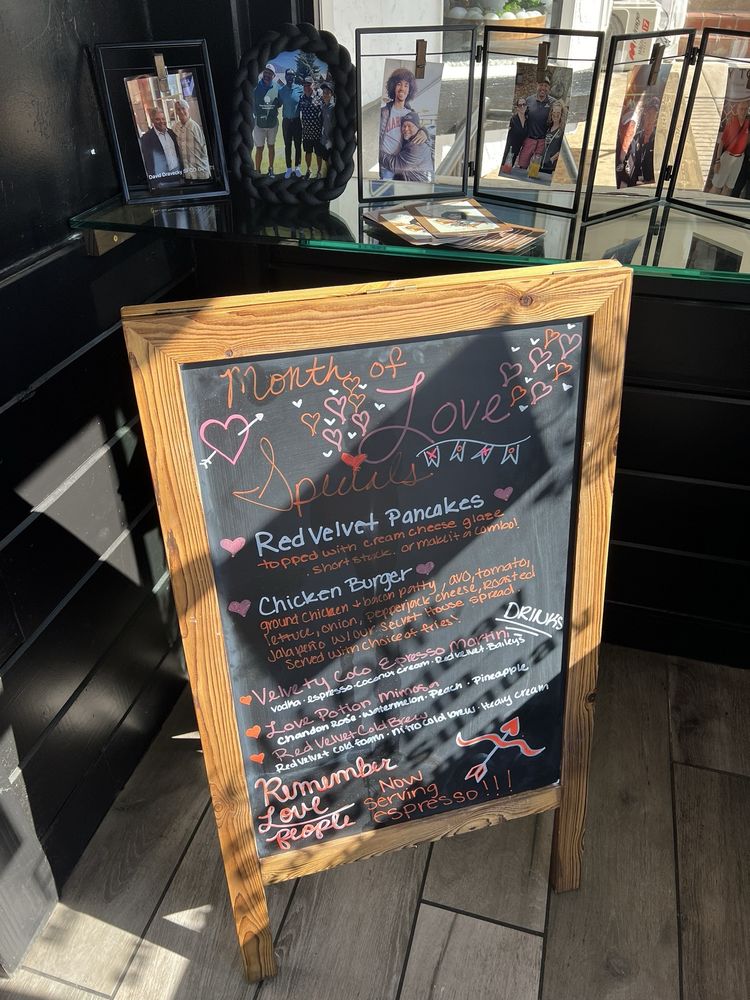 David Dravecky
Month of
Love
Specials
Red Velvet Pancakes
topped with cream cheese glaze
short stack. or make it a combo!
Chicken Burger
ground chicken + bacon patty, avo, tomato,
lettuce, onion, pepperjack cheese, Roasted
Jalapeño w/ our secret House spread.
Served with choice of fries!
DRINKS
Velvety Coco Espresso Martini
vodka · espresso · coconut cream · Red velvet · Baileys
Love Potion Mimosa
Chandon Rose · Watermelon · Peach · Pineapple
Red Velvet Cold Brew
Red velvet cold foam · nitro cold brew · Heavy cream
Remember
Love
People
Now
serving
espresso!!!